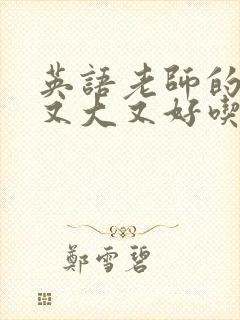 英語老師的
又大又好喫
鄭雪碧